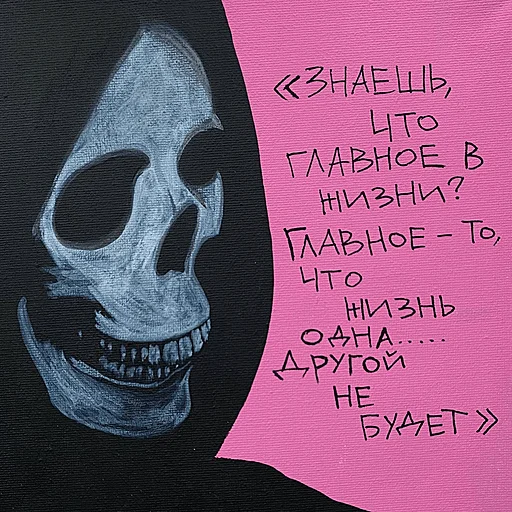 «ЗНАЕШЬ,
ЧТО
ГЛАВНОЕ В
ЖИЗНИ?
ГЛАВНОЕ – ТО,
ЧТО
ЖИЗНЬ
ОДНА.....
ДРУГОЙ
НЕ
БУДЕТ»